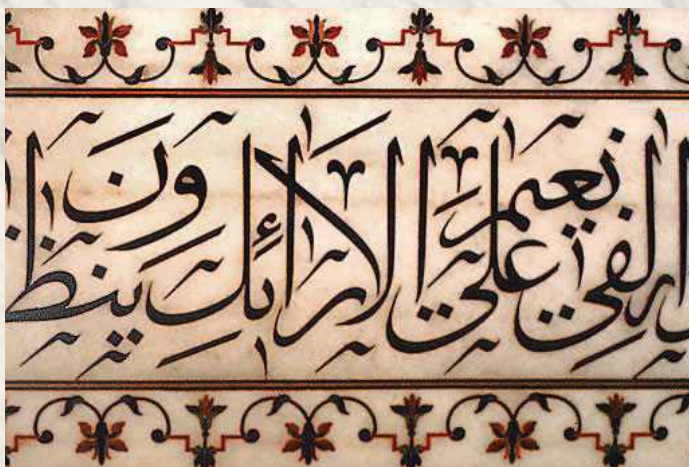 ار لفي نعيم على الارائك ينظرون